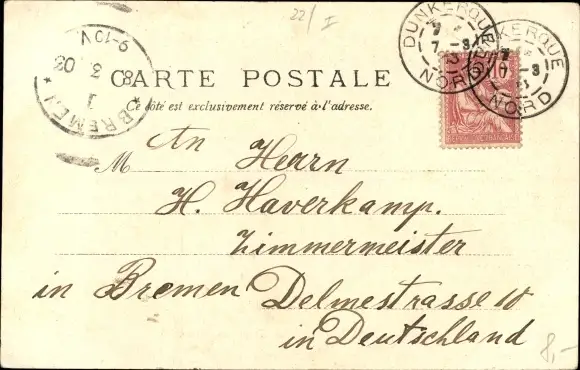 22/I
DUNKERQUE
7 -3
NORD
DUNKERQUE
7 -3
NORD
* BREMEN *
1
8 3 03
9-10 V.
CARTE POSTALE
Ce côté est exclusivement réservé à l'adresse.
M An Herrn
H. Haverkamp.
Zimmermeister
in Bremen Delmestrasse 10
in Deutschland
8,-